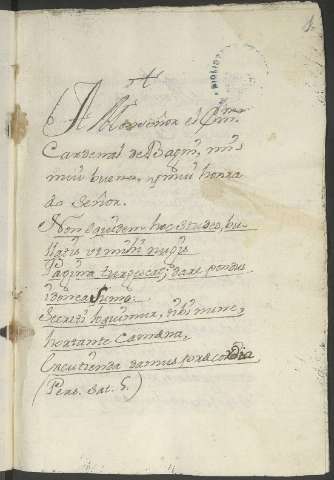 Al Monseñor el Emin.
Cardenal de Bagni, mio
mui bueno, y mui honra
do Señor.
Non equidem hoc studeo, bu-
llatis ut mihi nugis
Pagina turgescat, dare pondus
idonea fumo.
Secreti loquimur, tibi nunc,
hortante Camena,
Excutienda damus præcordia
(Pers. Sat. 5.)